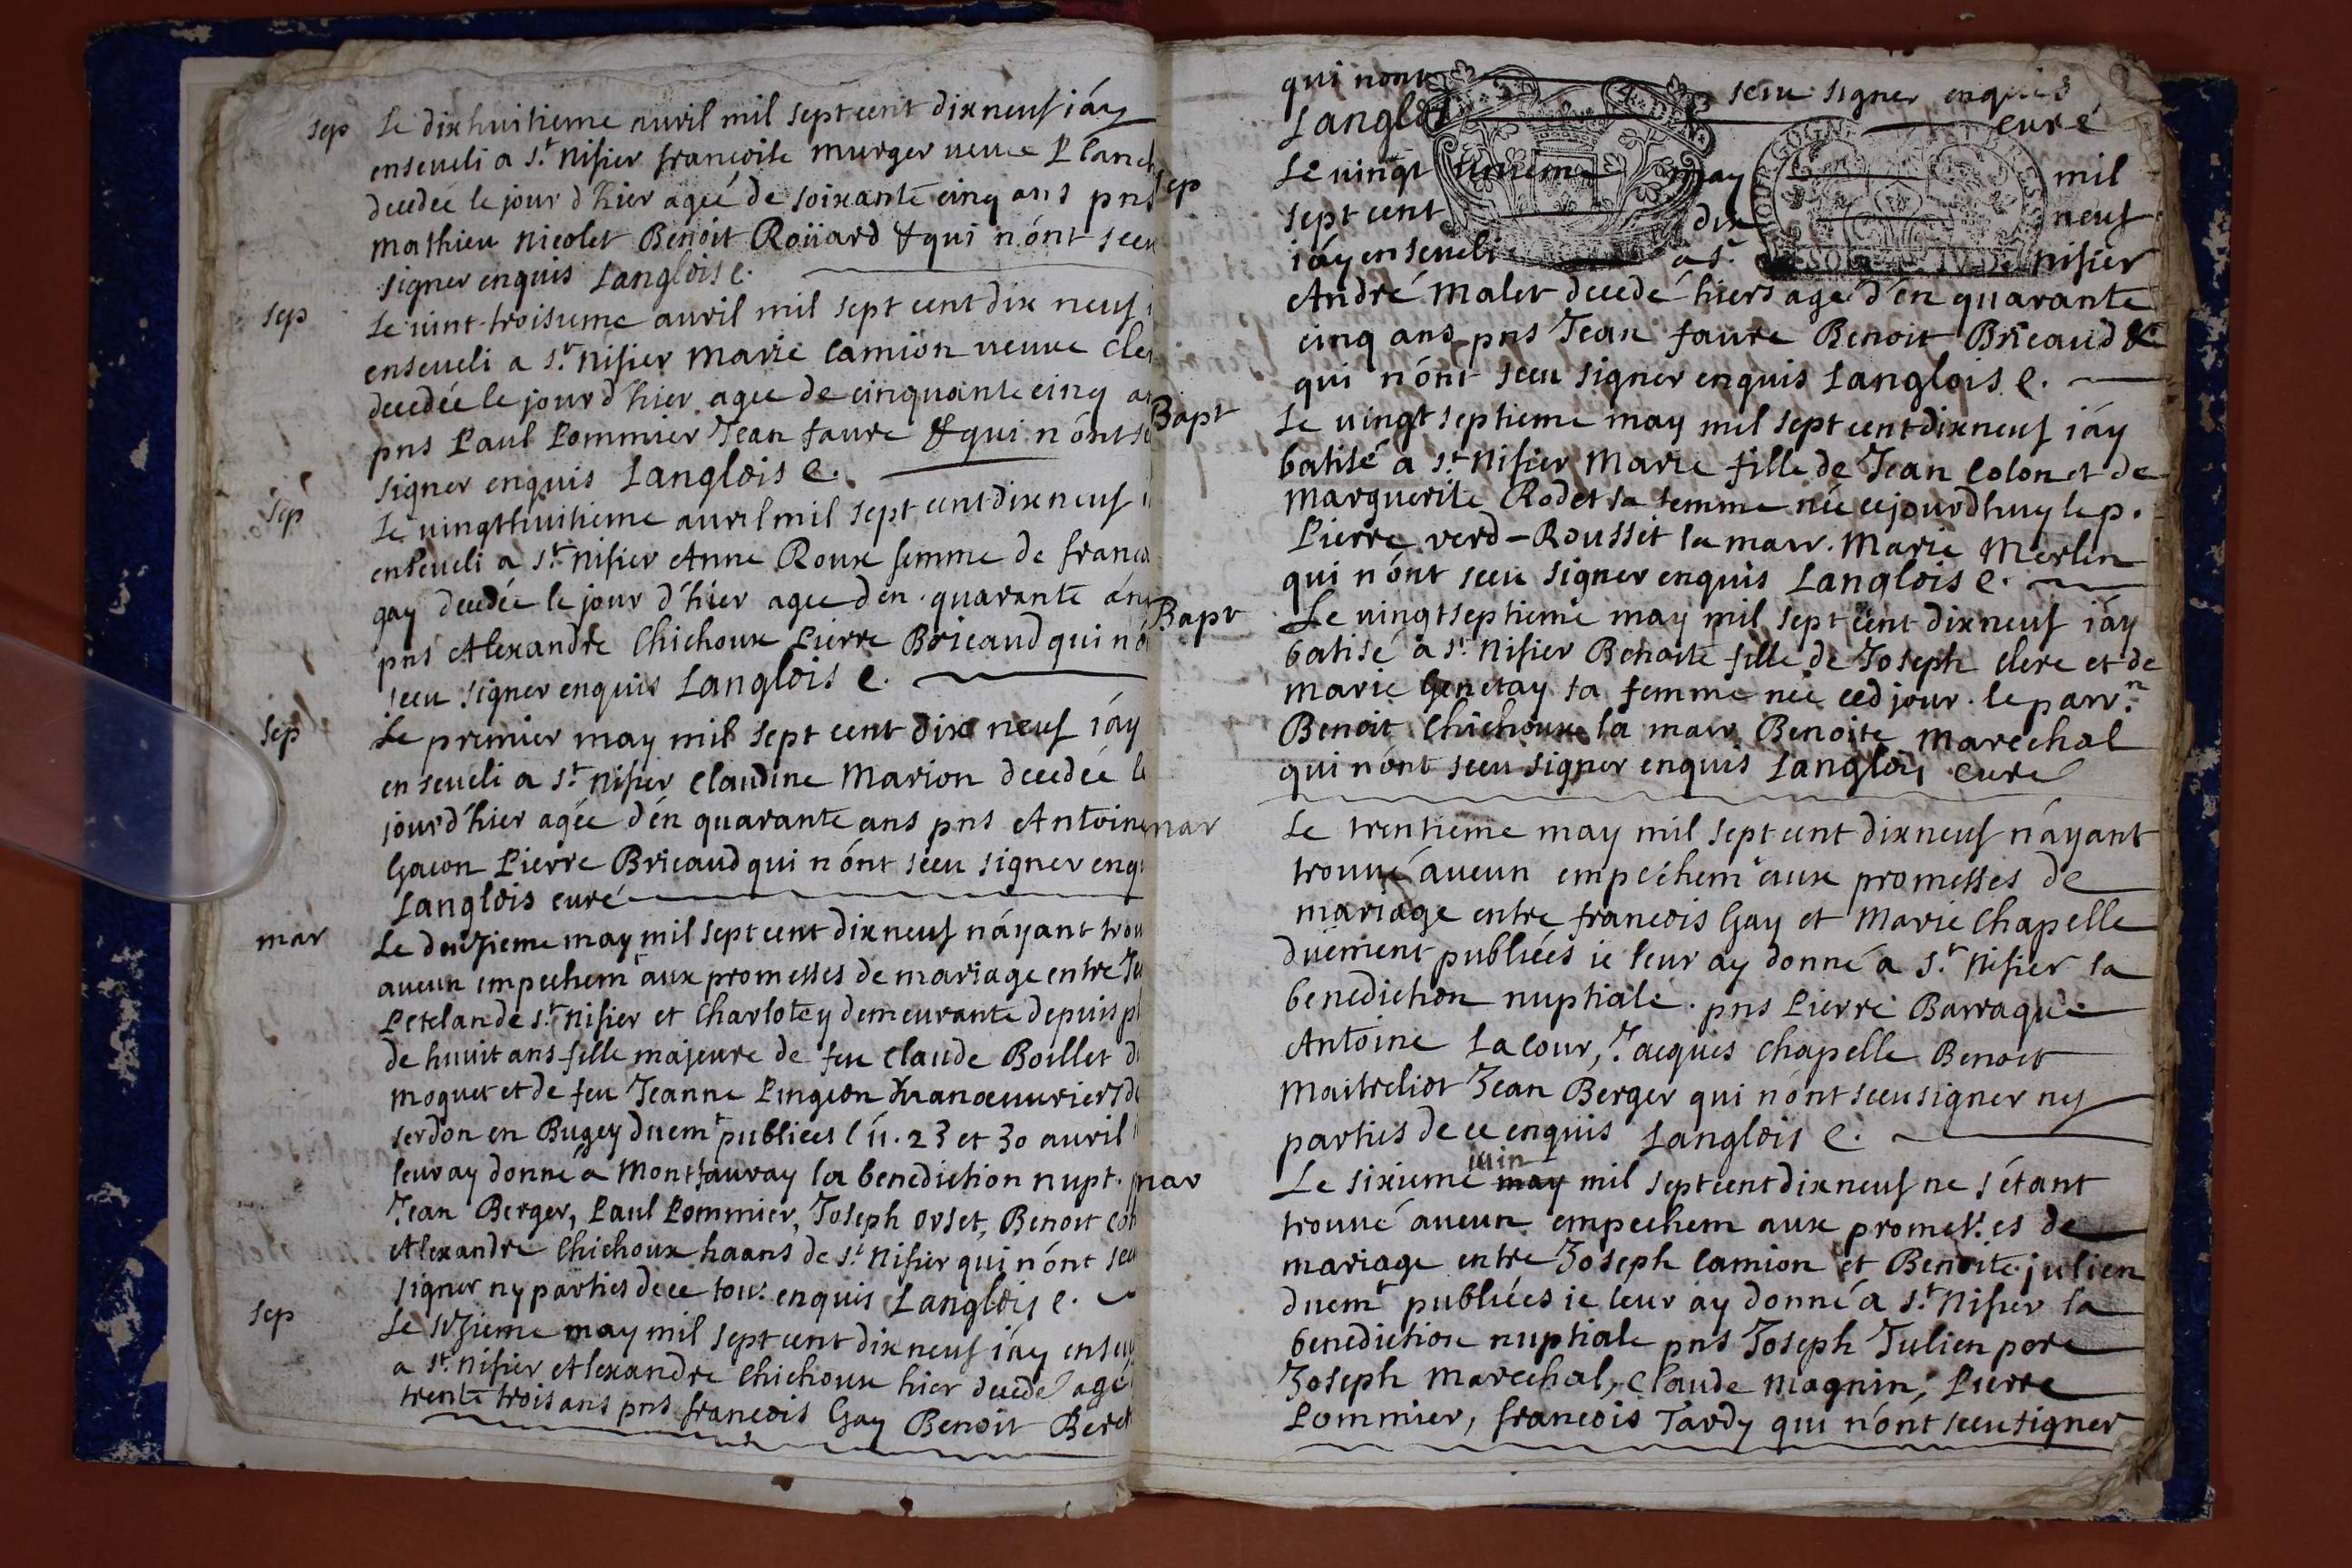 sep Le dixhuitieme auril mil sept cent dixneuf iáy
enseueli a St. Nisier francoise murger ueuue Planch
decedée le jour d'hier ageé de soixante cinq ans pns
mathieu Nicolet Benoit Roüard & qui n'ónt sceu
signer enquis Langlois C.
sep Le uint-troisieme auril mil sept cent dix neuf
enseueli a St. Nisier Marie Camiön ueuue Cler
decedée le jour d'hier agee de cinquante cinq an
pns Paul Pommier Jean faure & qui n'ónt s
signer enquis Langlois C.
sep Le uingthuitieme auril mil sept cent dix neuf
enseueli a St. Nisier Anne Roux femme de franco
gay decedée le jour d'hier agee d'en quarante áns
pns Alexandre Chichoux Pierre Bricaud qui nó
sceu signer enquis Langlois C.
sep Le premier may mil sept cent dix neuf iáy
enseueli a St. Nisier Claudine Marion decedée le
jour d'hier agée d'én quarante ans pns Antoine
Gacon Pierre Bricaud qui n'ónt sceu signer enq
Langlois curé
mar Le deuzieme may mil sept cent dixneuf n'áyant trou
aucun empechemt aux promesses de mariage entre
Peteland de St. Nisier et Charlote y demeurante depuis pl
de huuit ans fille majeure de feu Claude Boillet d
moquet et de feu Jeanne Pingeon manoeuuriers de
serdon en Bugey duemt publiees l'11. 23 et 30 auril
leur ay donné a Montfauray la benediction nupt. p
Jean Berger, Paul Pommier, Joseph Orset, Benoit Col
Alexandre Chichoux haans de St. Nisier qui n'ónt sceu
signer ny parties de ce tous enquis Langlois C.
sep Le sezieme may mil sept cent dix neuf iáy enseu
a St. Nisier Alexandre Chichoux hier decedé agé
trente trois ans pns francois Gay Benoit Beret
qui n'ont sceu signer enquis
Langlois curé
sep Le uingt unieme may mil
sept cent dix neuf
iáy enseueli a St. Nisier
André Malet decedé hiers agé d'én quarante
cinq ans pns Jean faure Benoit Bricaud &
qui n'ónt sceu signer enquis Langlois C.
Bapt Le uingt septieme may mil sept cent dixneuf iáy
batisé a St. Nisier Marie fille de Jean Colon et de
Marguerite Rodet sa femme née cejourdhuy le p.
Pierre verd-Rousset la marr. Marie Merlin
qui n'ónt sceu signer enquis Langlois C.
Bapt Le uingtseptieme may mil sept cent dixneuf iáy
batisé a St. Nisier Benoite fille de Joseph Clerc et de
Marie Genetay sa femme née ced jour. le parr.n
Benoit Chichoux la marr Benoite Marechal
qui n'ónt sceu signer enquis Langlois curé
mar Le trentieme may mil sept cent dixneuf n'áyant
trouué áucun empéchemt aux promesses de
mariage entre francois Gay et Marie Chapelle
duëment publiées ie leur ay donné a St. Nisier la
benediction nuptiale. pns Pierre Barraque
Antoine Lacour, Jacques Chapelle Benoit
Maitreliot Jean Berger qui n'ónt sceu signer ny
parties de ce enquis Langlois C.
mar Le sixieme may juin mil sept cent dixneuf ne s'étant
trouué aucun empechem aux promesses de
mariage entre Joseph Camion et Benoite julien
duemt publiées ie leur ay donné a St. Nisier la
benediction nuptiale pns Joseph Julien pere
Joseph Marechal, Claude Magnin, Pierre
Pommier, francois Tardy qui n'ónt sceu signer